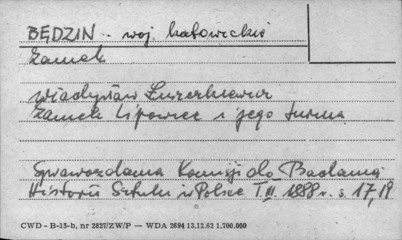 BĘDZIN - woj. katowickie
Zamek
Władysław Łuszczkiewicz
Zamek Lipowiec i jego turma
Sprawozdania Komisji do Badania
Historii Sztuki w Polsce T. III. 1888 r. s. 17, 19
CWD - B-15-b, nr 2827/ZW/P — WDA 2694 13.12.62 1.700.000